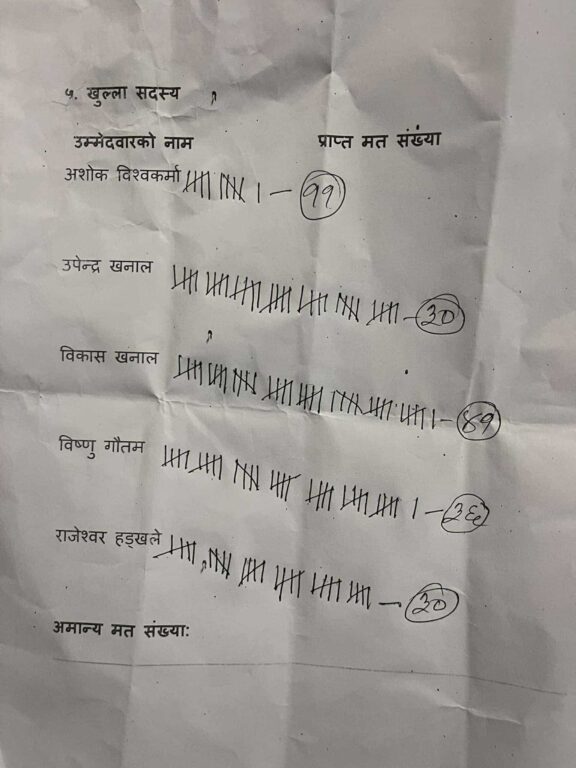 ५. खुल्ला सदस्य
उम्मेदवारको नाम प्राप्त मत संख्या
अशोक विश्वकर्मा ११
उपेन्द्र खनाल ३०
विकास खनाल ४१
विष्णु गौतम ३६
राजेश्वर हड्खले ३०
अमान्य मत संख्या: